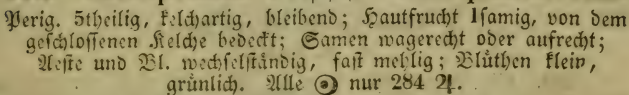 Perig. 5theilig, kelchartig, bleibend; Hautfrucht 1samig, von dem
geschlossenen Kelche bedeckt; Samen wagerecht oder aufrecht;
Aeste und Bl. wechselständig, fast mehlig; Blüthen klein,
grünlich. Alle ☉ nur 284 ♃.